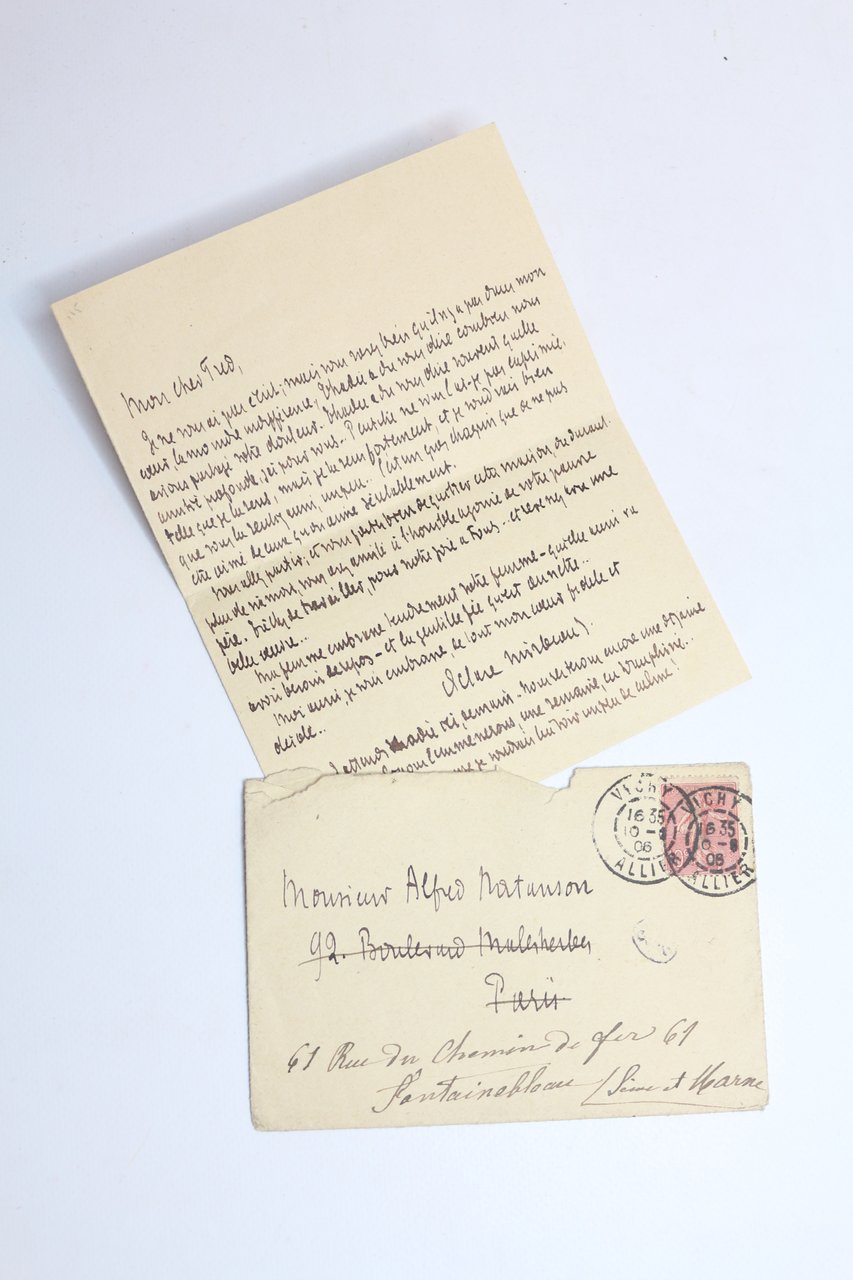 Mon cher Fred,
Je ne vous ai pas écrit; mais vous savez bien qu'il n'y a pas dans mon
cœur, la moindre indifférence. Thadée a dû vous dire combien nous
avions partagé votre douleur. Thadée a dû vous dire souvent quelle
amitié profonde, j'ai pour vous.. Peut-être ne vous l'ai-je pas exprimée,
telle que je la sens, mais je la sens fortement, et je voudrais bien
que vous la sentiez aussi, un peu.. C'est un gros chagrin que de ne pas
être aimé de ceux qu'on aime véritablement.
Vous allez partir, et vous ferez bien de quitter cette maison, où durant
plus de six mois, vous avez assisté à l'horrible agonie de votre pauvre
père. Tâchez de travailler, pour notre joie à tous.. et revenez avec une
belle œuvre...
Ma femme embrasse tendrement votre femme – qui elle aussi va
avoir besoin de repos – et la gentille fée qu'est Annette..
Moi aussi, je vous embrasse, de tout mon cœur fidèle et
désolé..
Octave Mirbeau.
J'attends Thadée ici, demain. Nous resterons encore une dizaine
nous l'emmènerons, une semaine, en Dauphiné...
je voudrais lui voir un peu de calme!
VICHY
16 35
10 - 8
06
ALLIER
VICHY
16 35
0 - 8
06
ALLIER
Monsieur Alfred Natanson
92. Boulevard Malesherbes
Paris
61 Rue du Chemin de fer 61
Fontainebleau (Seine et Marne